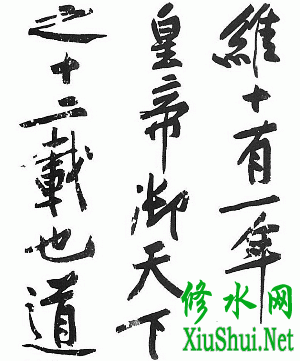 維十有一年
皇帝御天下
之十二載也道
修水网
XiuShui.Net